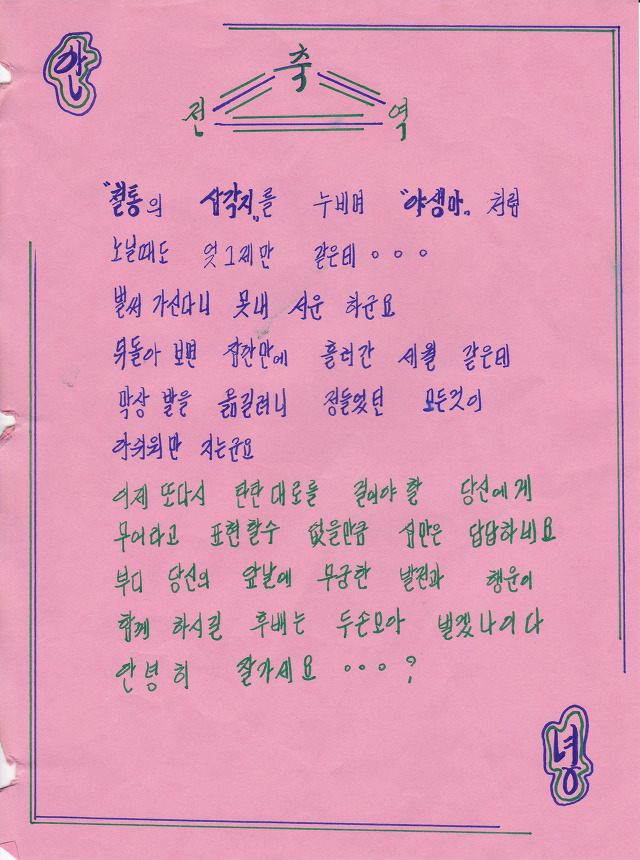 안
축
전 역
"철통의 삼각지"를 누비며 "야생마" 처럼
노닐때도 엇그제만 같은데 ...
벌써 가신다니 못내 서운 하군요
뒤돌아 보면 잠깐만에 흘러간 세월 같은데
막상 발을 옮길려니 정들었던 모든것이
아쉬워만 지는군요
이제 또다시 탄탄대로를 걸어야 할 당신에게
무어라고 표현할수 없을만큼 섭만은 답답하네요
부디 당신의 앞날에 무궁한 발전과 행운이
함께 하시길 후배는 두손모아 빌겠나이다
안녕히 잘가세요 ...?
녕